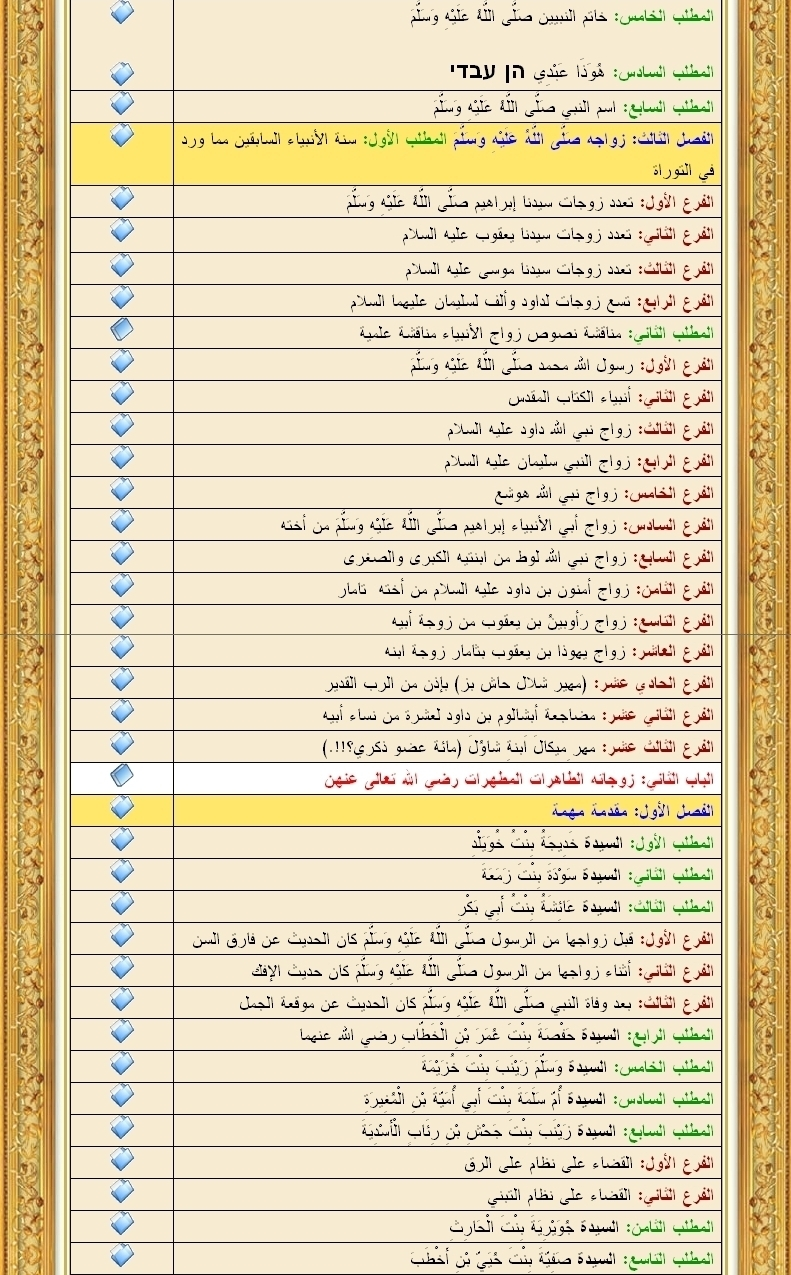 المطلب الخامس: خاتم النبيين صَلَّى اللَّهُ عَلَيْهِ وَسَلَّمَ
المطلب السادس: هُوَذَا عَبْدِي הן עבדי
المطلب السابع: اسم النبي صَلَّى اللَّهُ عَلَيْهِ وَسَلَّمَ
الفصل الثالث: زواجه صَلَّى اللَّهُ عَلَيْهِ وَسَلَّمَ المطلب الأول: سنة الأنبياء السابقين مما ورد
في التوراة
الفرع الأول: تعدد زوجات سيدنا إبراهيم صَلَّى اللَّهُ عَلَيْهِ وَسَلَّمَ
الفرع الثاني: تعدد زوجات سيدنا يعقوب عليه السلام
الفرع الثالث: تعدد زوجات سيدنا موسى عليه السلام
الفرع الرابع: تسع زوجات لداود وألف لسليمان عليهما السلام
المطلب الثاني: مناقشة نصوص زواج الأنبياء مناقشة علمية
الفرع الأول: رسول الله محمد صَلَّى اللَّهُ عَلَيْهِ وَسَلَّمَ
الفرع الثاني: أنبياء الكتاب المقدس
الفرع الثالث: زواج نبي الله داود عليه السلام
الفرع الرابع: زواج النبي سليمان عليه السلام
الفرع الخامس: زواج نبي الله هوشع
الفرع السادس: زواج أبي الأنبياء إبراهيم صَلَّى اللَّهُ عَلَيْهِ وَسَلَّمَ من أخته
الفرع السابع: زواج نبي الله لوط من ابنتيه الكبرى والصغرى
الفرع الثامن: زواج أمنون بن داود عليه السلام من أخته تامار
الفرع التاسع: زواج رَأوبينُ بن يعقوب من زوجة أبيه
الفرع العاشر: زواج يهوذا بن يعقوب بثامار زوجة ابنه
الفرع الحادي عشر: (مهير شلال حاش بز) بإذن من الرب القدير
الفرع الثاني عشر: مضاجعة أبشالوم بن داود لعشرة من نساء أبيه
الفرع الثالث عشر: مهر مِيكَالَ اَبنةِ شاوُلَ (مائة عضو ذكري؟!!.)
الباب الثاني: زوجاته الطاهرات المطهرات رضي الله تعالى عنهن
الفصل الأول: مقدمة مهمة
المطلب الأول: السيدة خَدِيجَةُ بِنْتُ خُوَيْلْدِ
المطلب الثاني: السيدة سَوْدَةَ بِنْتَ زَمَعَةَ
المطلب الثالث: السيدة عَائشَةُ بِنْتُ أَبِي بَكْرِ
الفرع الأول: قبل زواجها من الرسول صَلَّى اللَّهُ عَلَيْهِ وَسَلَّمَ كان الحديث عن فارق السن
الفرع الثاني: أثناء زواجها من الرسول صَلَّى اللَّهُ عَلَيْهِ وَسَلَّمَ كان حديث الإفك
الفرع الثالث: بعد وفاة النبي صَلَّى اللَّهُ عَلَيْهِ وَسَلَّمَ كان الحديث عن موقعة الجمل
المطلب الرابع: السيدة حَفْصَةَ بِنْتَ عُمَرَ بْنِ الْخَطَّابِ رضي الله عنهما
المطلب الخامس: السيدة وَسَلَّمَ زَيْنَبَ بِنْتَ خُزَيْمَةَ
المطلب السادس: السيدة أُمّ سَلَمَةَ بِنْتَ أَبِي أُمَيّةَ بْنِ الْمُغِيرَةِ
المطلب السابع: السيدة زَيْنَبَ بِنْتَ جَحْشِ بْنِ رِئَابِ الْأَسْدِيَةَ
الفرع الأول: القضاء على نظام على الرق
الفرع الثاني: القضاء على نظام التبني
المطلب الثامن: السيدة جُوَيْرِيَةَ بِنْتَ الْحَارِثِ
المطلب التاسع: السيدة صَفِيّةَ بِنْتَ حُيَيّ بْنِ أَخْطَبَ